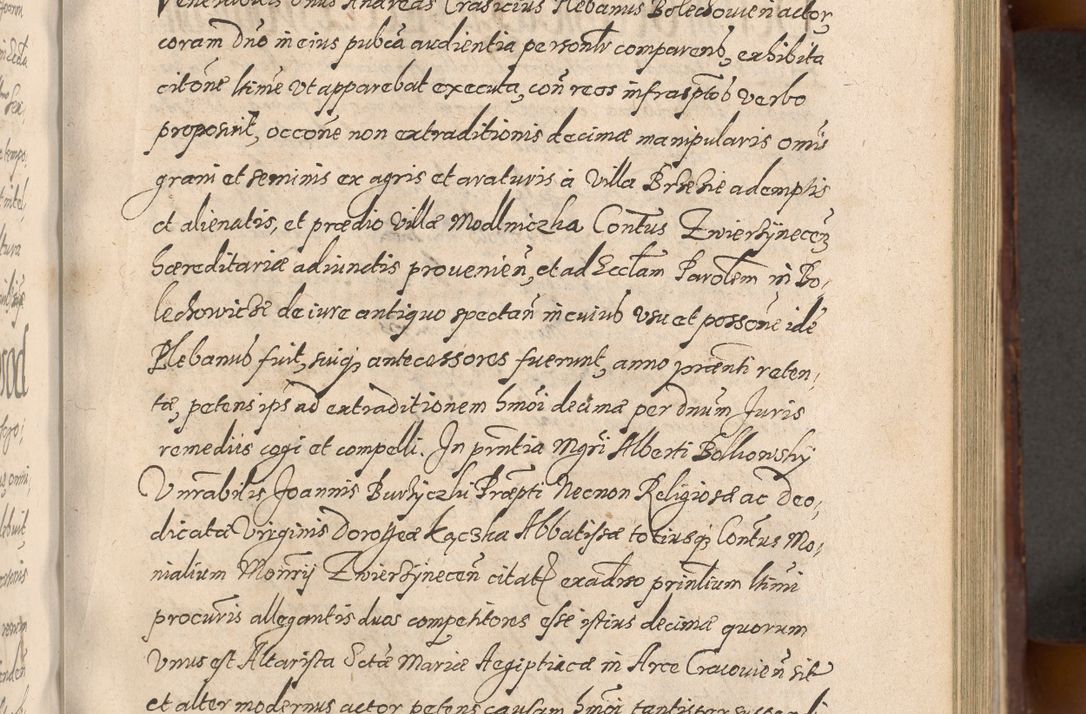 Venerabilis Dnus Andreas Crasicius Plebanus Bolechovien actor
coram Dno in eius pubca audientia personlr comparens, exhibita
citone ltime ut apparebat executa, con reos infrasptos verbo
proposuit, occone non extraditionis decimæ manipularis omis
grani et seminis ex agris et araturis à Villa Brzezie ademptis
et alienatis, et prædio Villæ Modlniczka Contus Zwierzÿnecen
hæreditariæ adiunctis provenien, et ad Ecclam Parolem in Bo,
lechowicze de iure antiquo spectan in cuius usu et possone ide
Plebanus fuit, suiq antecessores fuerunt, anno prænti reten,
tæ, petens ips ad extraditionem hmoi decimæ per dnum Juris
remediis cogi et compelli. In prntia Mgri Alberti Bolkowsky
Vnrabilis Joannis Burzyczki Præpti Necnon Religiosæ ac Deo,
dicatæ Virginis Dorotheæ Kączka Abbatissæ totiusq Contus Mo,
nialium Monrij Zwierzÿnecen citat exadvo printium ltimi
procuris allegantis duos competitores esse istius decimæ quorum
Unus est Altarista Sctæ Mariæ Aegiptiacæ in Arce Cracovien sit
et alter modernus actor petens causam hmoi tantisper suspendi